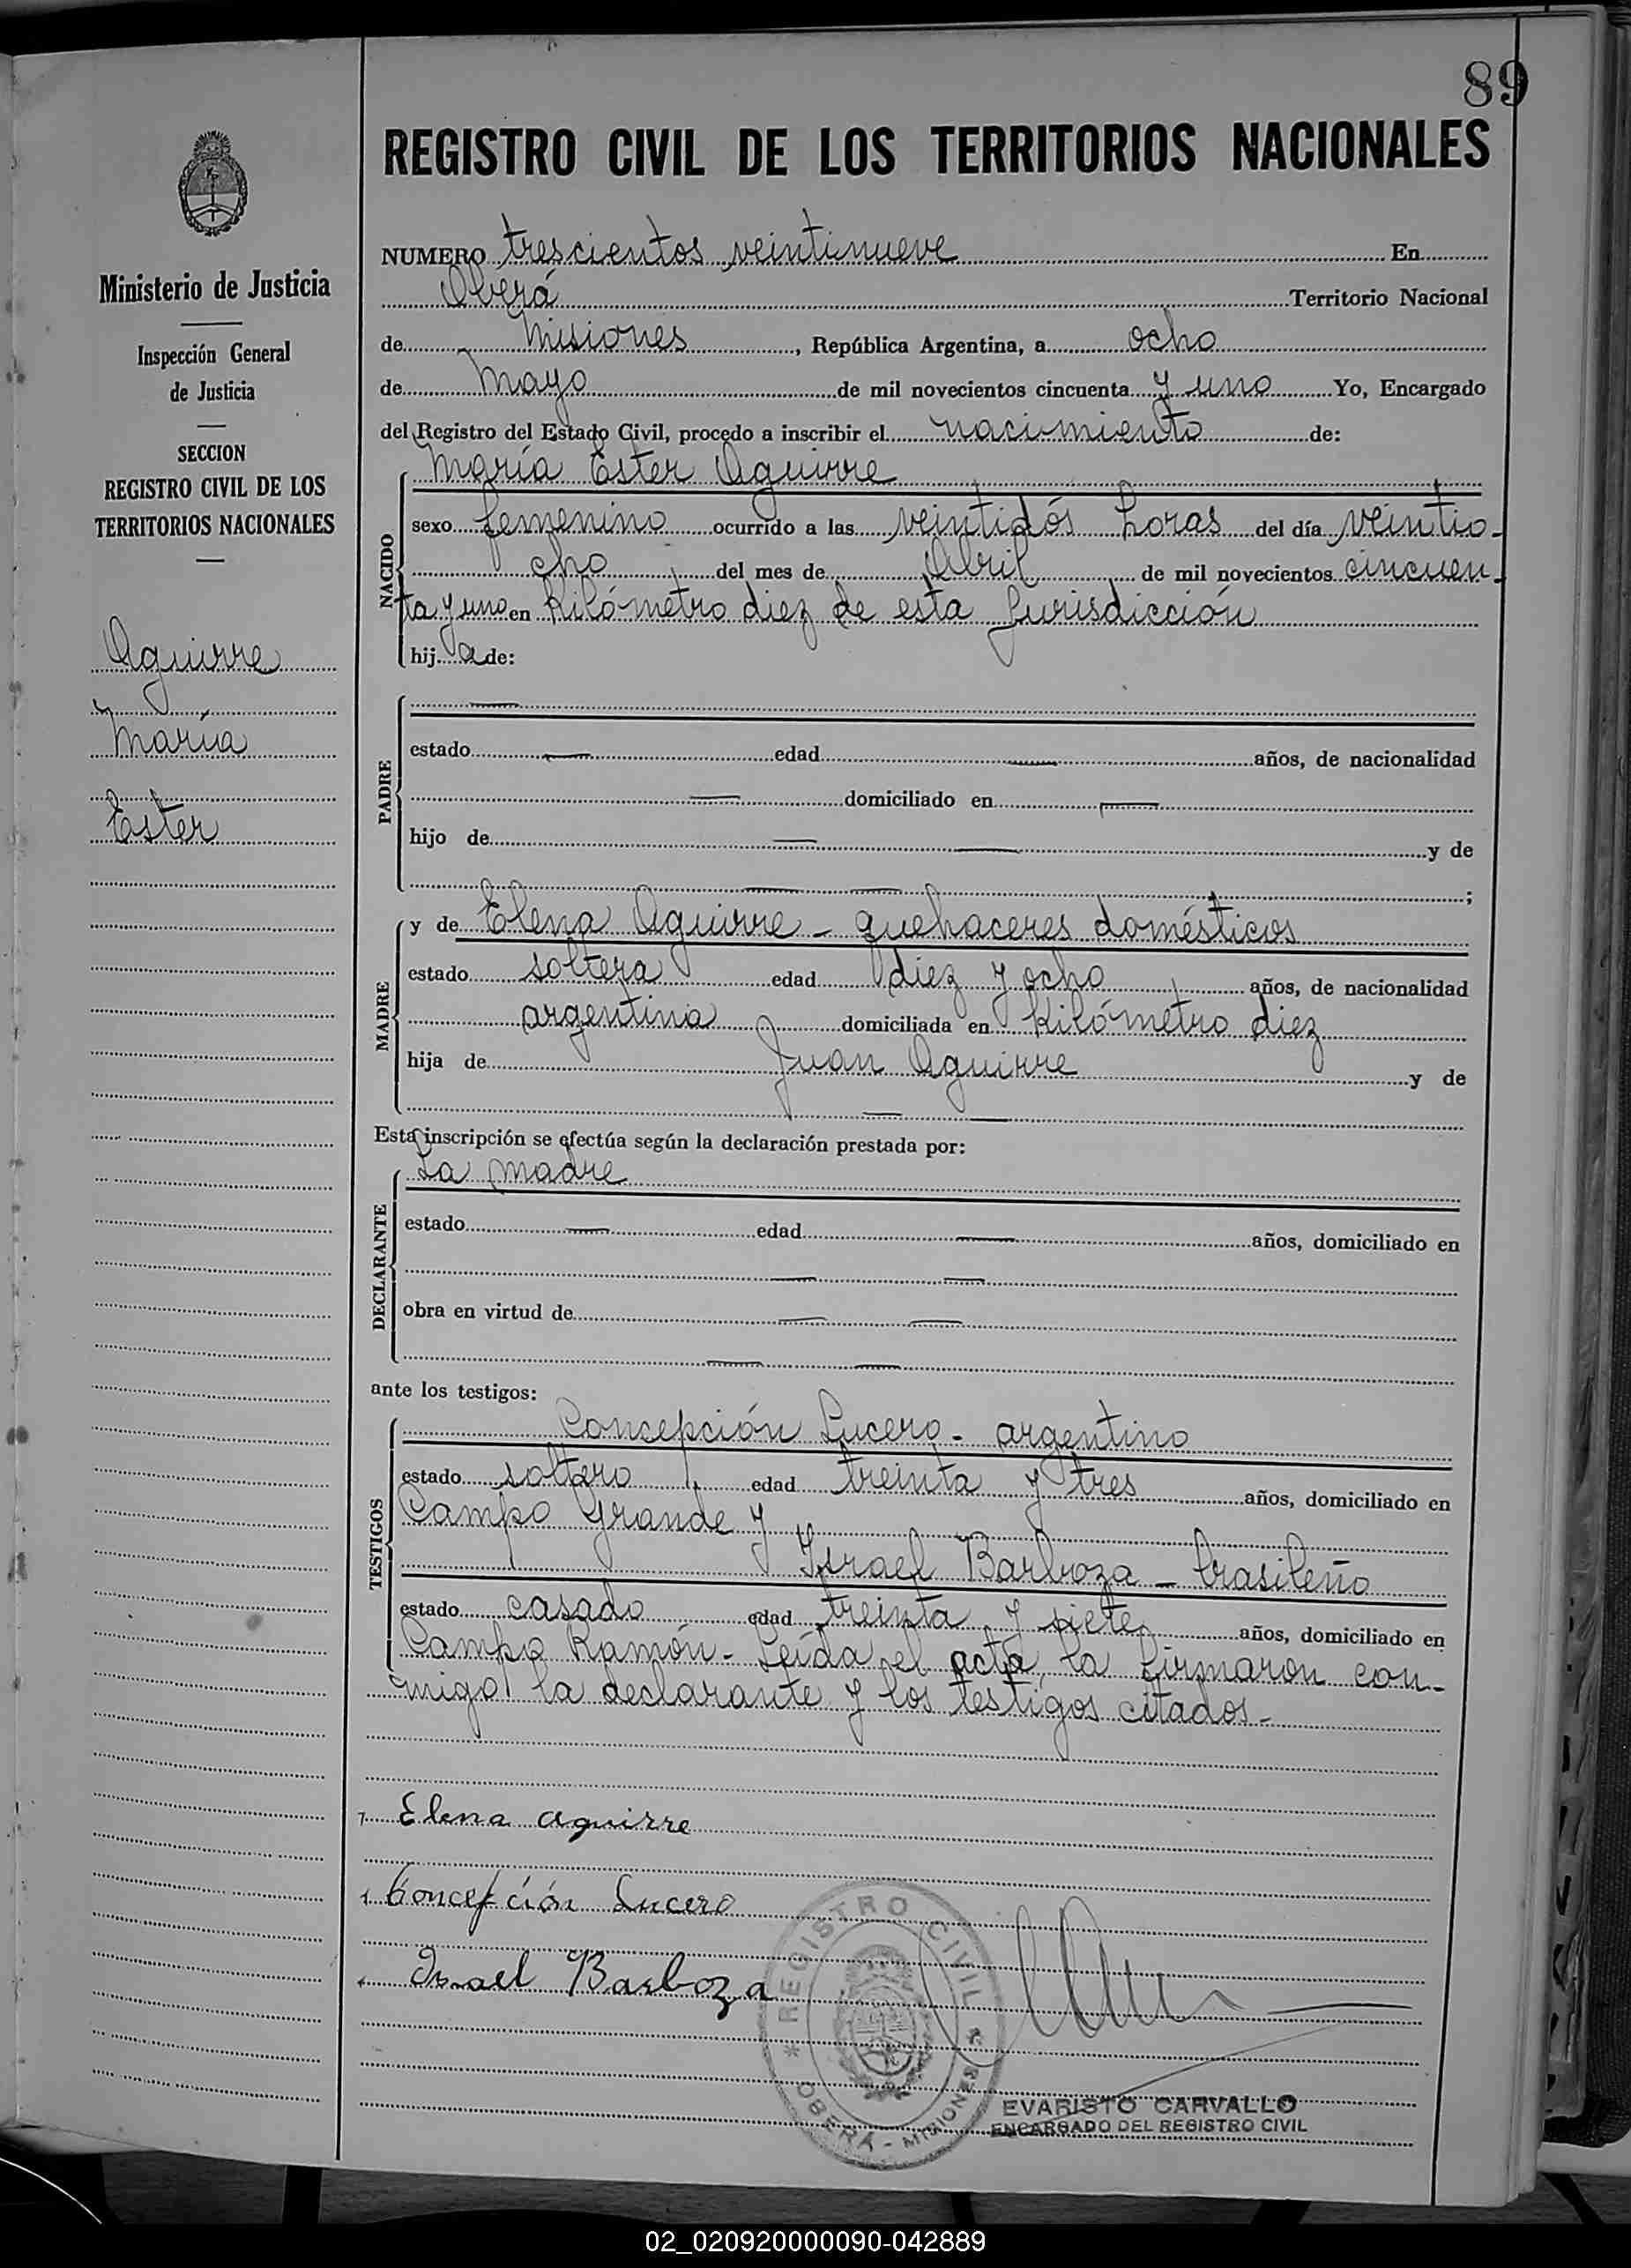 89
REGISTRO CIVIL DE LOS TERRITORIOS NACIONALES
Ministerio de Justicia
Inspección General
de Justicia
SECCION
REGISTRO CIVIL DE LOS
TERRITORIOS NACIONALES
Aguirre
María
Ester
NUMERO trescientos veintinueve En
Oberá Territorio Nacional
de Misiones, República Argentina, a ocho
de Mayo de mil novecientos cincuenta y uno Yo, Encargado
del Registro del Estado Civil, procedo a inscribir el nacimiento de:
NACIDO
María Ester Aguirre
sexo femenino ocurrido a las veintidós horas del día veintio-
cho del mes de Abril de mil novecientos cincuen-
ta y uno en Kilómetro diez de esta Jurisdicción
hija de:
PADRE
estado — edad — años, de nacionalidad
— domiciliado en —
hijo de — — y de
— — ;
MADRE
y de Elena Aguirre - quehaceres domésticos
estado soltera edad diez y ocho años, de nacionalidad
argentina domiciliada en Kilómetro diez
hija de Juan Aguirre y de
— —
Esta inscripción se efectúa según la declaración prestada por:
DECLARANTE
La madre
estado — edad — años, domiciliado en
— —
obra en virtud de — —
— —
ante los testigos:
TESTIGOS
Concepción Lucero - argentino
estado soltero edad treinta y tres años, domiciliado en
Campo Grande y
Israel Barboza - brasileño
estado casado edad treinta y siete años, domiciliado en
Campo Ramón - Leída el acta, la firmaron con-
migo la declarante y los testigos citados -
Elena Aguirre
Concepción Lucero
Israel Barboza
REGISTRO CIVIL
OBERÁ - MISIONES
EVARISTO CARVALLO
ENCARGADO DEL REGISTRO CIVIL
02_020920000090-042889